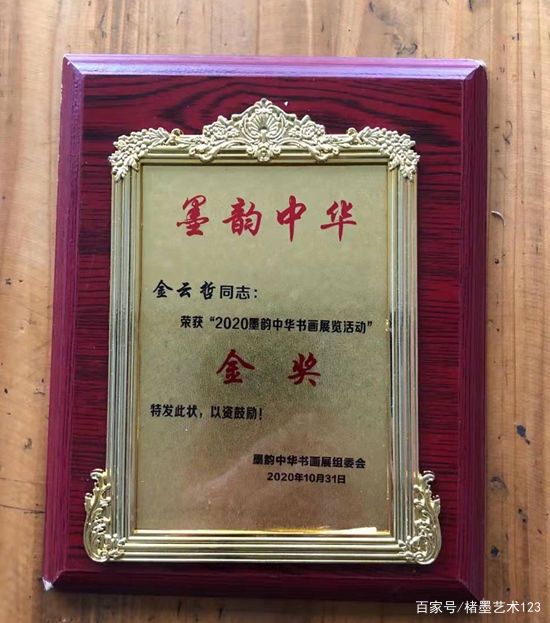 墨韵中华
金云哲同志：
荣获“2020墨韵中华书画展览活动”
金奖
特发此状，以资鼓励！
墨韵中华书画展组委会
2020年10月31日
百家号/楮墨艺术123